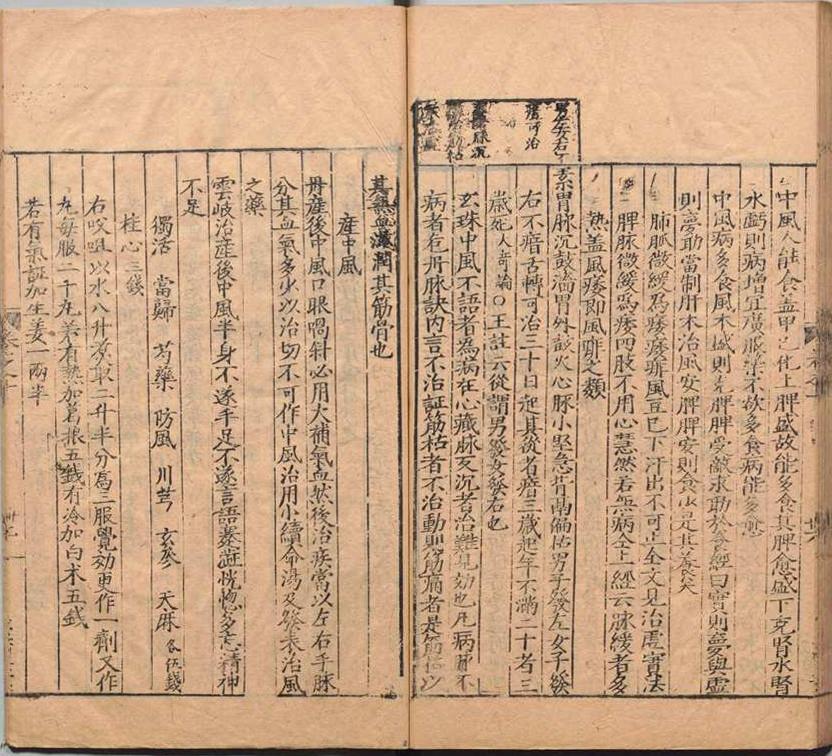 中風人能食蓋甲之化上脾盛故能多食其脾愈盛下克腎水腎
水虧則病增宜廣服藥不欲多食病能多愈
中風病多食風木盛則克脾脾受敵求助於食經曰實則夢與虛
則夢取當制肝木治風安脾脾安則食少是其養矣
肺脈微緩為痿瘻偏風豆已下汗出不可止全文見治虛實法
脾脈微緩為痿四肢不用心慧然若無病仝上經云脈緩者多
熱蓋風痿即風痱之類
素胃脉沉鼓濇胃外鼓大心脉小堅急皆鬲偏枯男子發左女子發
右不瘖舌轉可治三十日起其從者瘖三歲起年不滿二十者三
歲死大奇論○王註云從謂男發女發右也
玄珠中風不語者為病在心藏脉又沉者治難見効也凡病
病者色丹脉訣內言不治証筋枯者不治動則筋痛者是筋
男左女右
瘖可治
脉沉
筋枯
其熱血滋潤其筋骨也
産中風
丹産後中風口眼喎斜必用大補氣血然後治痰當以左右手脉
分其血氣多少以治切不可作中風治用小續命湯及發表治風
之藥
雲岐治産後中風半身不遂手足不遂言語蹇澁恍惚多忘精神
不足
獨活 當歸 芍藥 防風 川芎 玄參 天麻 各伍錢
桂心三錢
右㕮咀以水八升煮取二升半分為三服覺効更作一劑又作
丸每服二十丸若有熱加葛根五錢有冷加白术五錢
若有氣証加生姜一兩半